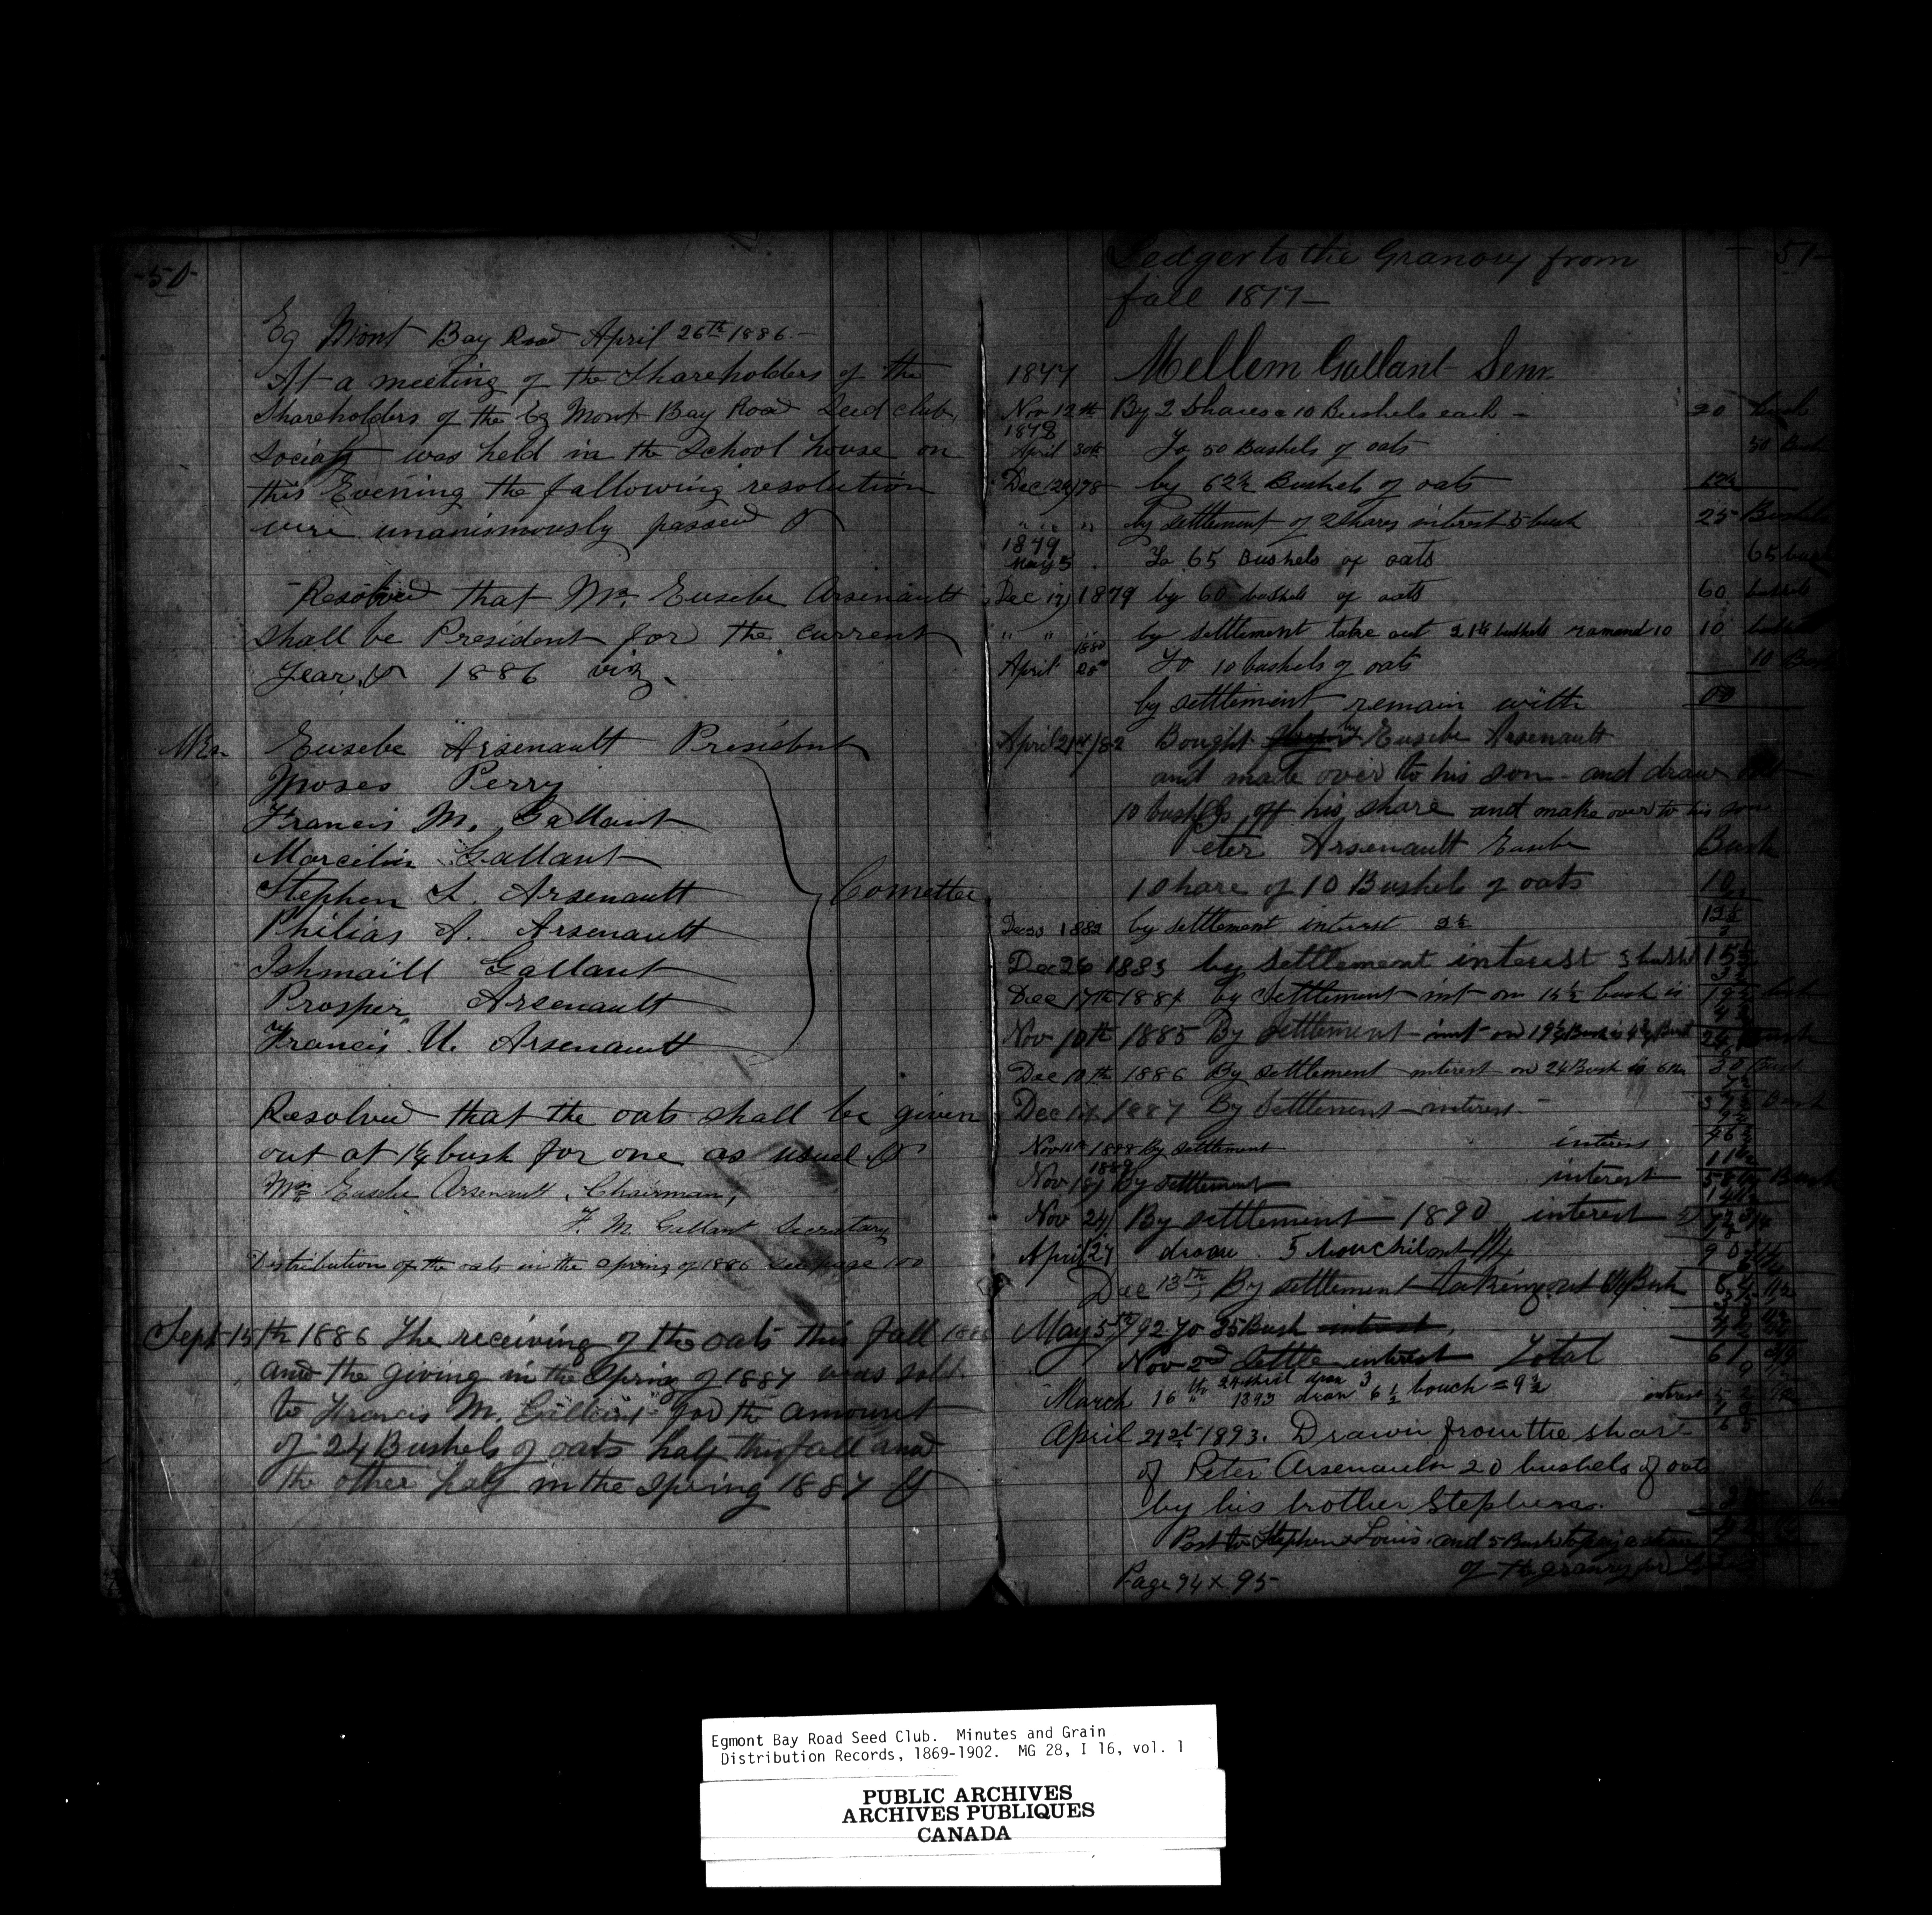 -50-
Eg Mont Bay Road April 26th 1886.-
At a meeting of the Shareholders of the
Shareholders of the Eg Mont Bay Road Seed club,
Society was held in the School house on
this Evening the fallowing resolution
were unanismously passed
Resolved that Mr. Eusebe Arsenault
shall be President for the current
Year 1886 viz.
Mrs. Eusebe Arsenault President
Moses Perry
Francis M. Gallant
Marcilin Gallant
Stephen L. Arsenault
Comettee
Philias A. Arsenault
Ishmaill Gallant
Prosper Arsenault
Francis U. Arsenault
Resolved that the oats shall be given
out at 1¼ bush for one as usuel
Mr. Eusebe Arsenault, Chairman,
F. M. Gallant Secretary
Distribution of the oats in the spring of 1886 see page 100
Sept 15th 1886 The receiving of the oats this fall 1886
and the giving in the Spring of 1887 was sold
to Francis M. Gallant for the amount
of 24 Bushels of oats half this fall and
the other half in the Spring 1887
51-
Ledger to the Granory from
fall 1877-
1877 Mellem Gallant Senr.
Nov 12th By 2 Shares a 10 Bushels each - 20 bush
1878
April 30th To 50 Bushels of oats 50 Bush
Dec 24/78 by 62½ Bushels of oats 12½
" " " by settlement of 2 Shares interest 5 bush 25 Bushels
1879
May 3 To 65 Bushels of oats 65 bush
Dec 17/1879 by 60 bushels of oats 60 bushels
" " " by settlement take out 21¼ bushels ramand 10 10
1880
April 20th To 10 bushels of oats 10 Bush
by settlement remain with 00
April 21st/82 Bought by Eusebe Arsenault
and made over to his son - and draw
10 bushels off his share and make over to his son
eter Arsenault Eusebe Bush
1 Share of 10 Bushels of oats 10
Dec 1882 by settlement interest 2½ 12½
Dec 26 1883 by settlement interest 3 bushel 15½
Dec 17th 1884 by Settlement int on 15½ bush is 19½
Nov 10th 1885 By settlement int on 19½ Bush is 4¾ Bush 24
Dec 10th 1886 By settlement interest on 24 Bush is 6 Bu 30 Bush
Dec 17 1887 By Settlement interest - 37½ Bush
Nov 1888 By settlement interes 46½
1889
Nov 19 By settlement interest 58 Bush
Nov 24 By settlement 1890 interest
April 27 draw 5
Dec 13th, By settlement taking out Bush
May 5th/92 To 25 Bush interest,
Nov 2nd Settle interest Total 61
24 draw 3
March 16th " 1893 draw 6½ bouch = 9½ interest
April 21st 1893. Drawn from the share
of Peter Arsenault 20 bushels of oat
by his brother Stephen.
Post to Stephen & Louis, and 5 Bush
of the granry for
Page 94 x 95-
Egmont Bay Road Seed Club. Minutes and Grain
Distribution Records, 1869-1902. MG 28, I 16, vol. 1
PUBLIC ARCHIVES
ARCHIVES PUBLIQUES
CANADA